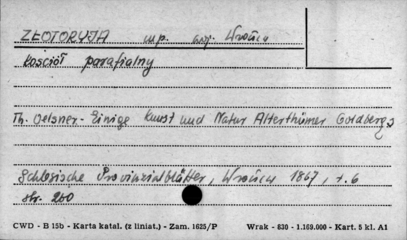 ZŁOTORYJA w.p. woj. Wrocław
kościół parafialny
Th. Oelsner - Einige Kunst und Natur Alterthümer Goldbergs
Schlesische Provinzialblätter, Wrocław 1867, t. 6
str. 260
CWD - B 15b - Karta katal. (z liniat.) - Zam. 1625/P Wrak - 830 - 1.169.000 - Kart. 5 kl. A1